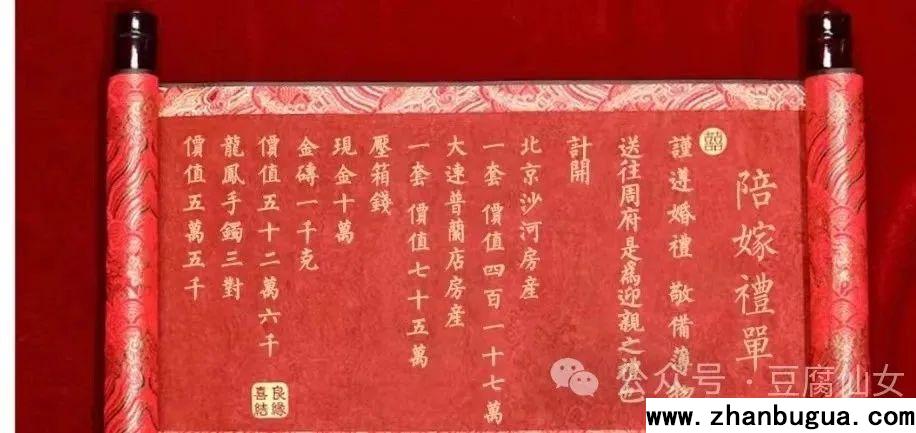 陪嫁禮單
囍
謹遵婚禮 敬備薄物
送往周府是為迎親之禮也
計開
北京沙河房産
一套 價值四百一十七萬
大連普蘭店房産
一套 價值七十五萬
壓箱錢
現金十萬
金磚一千克
價值五十二萬六千
龍鳳手鐲三對
價值五萬五千
良緣
喜結
公众号·豆腐仙女
www.zhanbugua.com